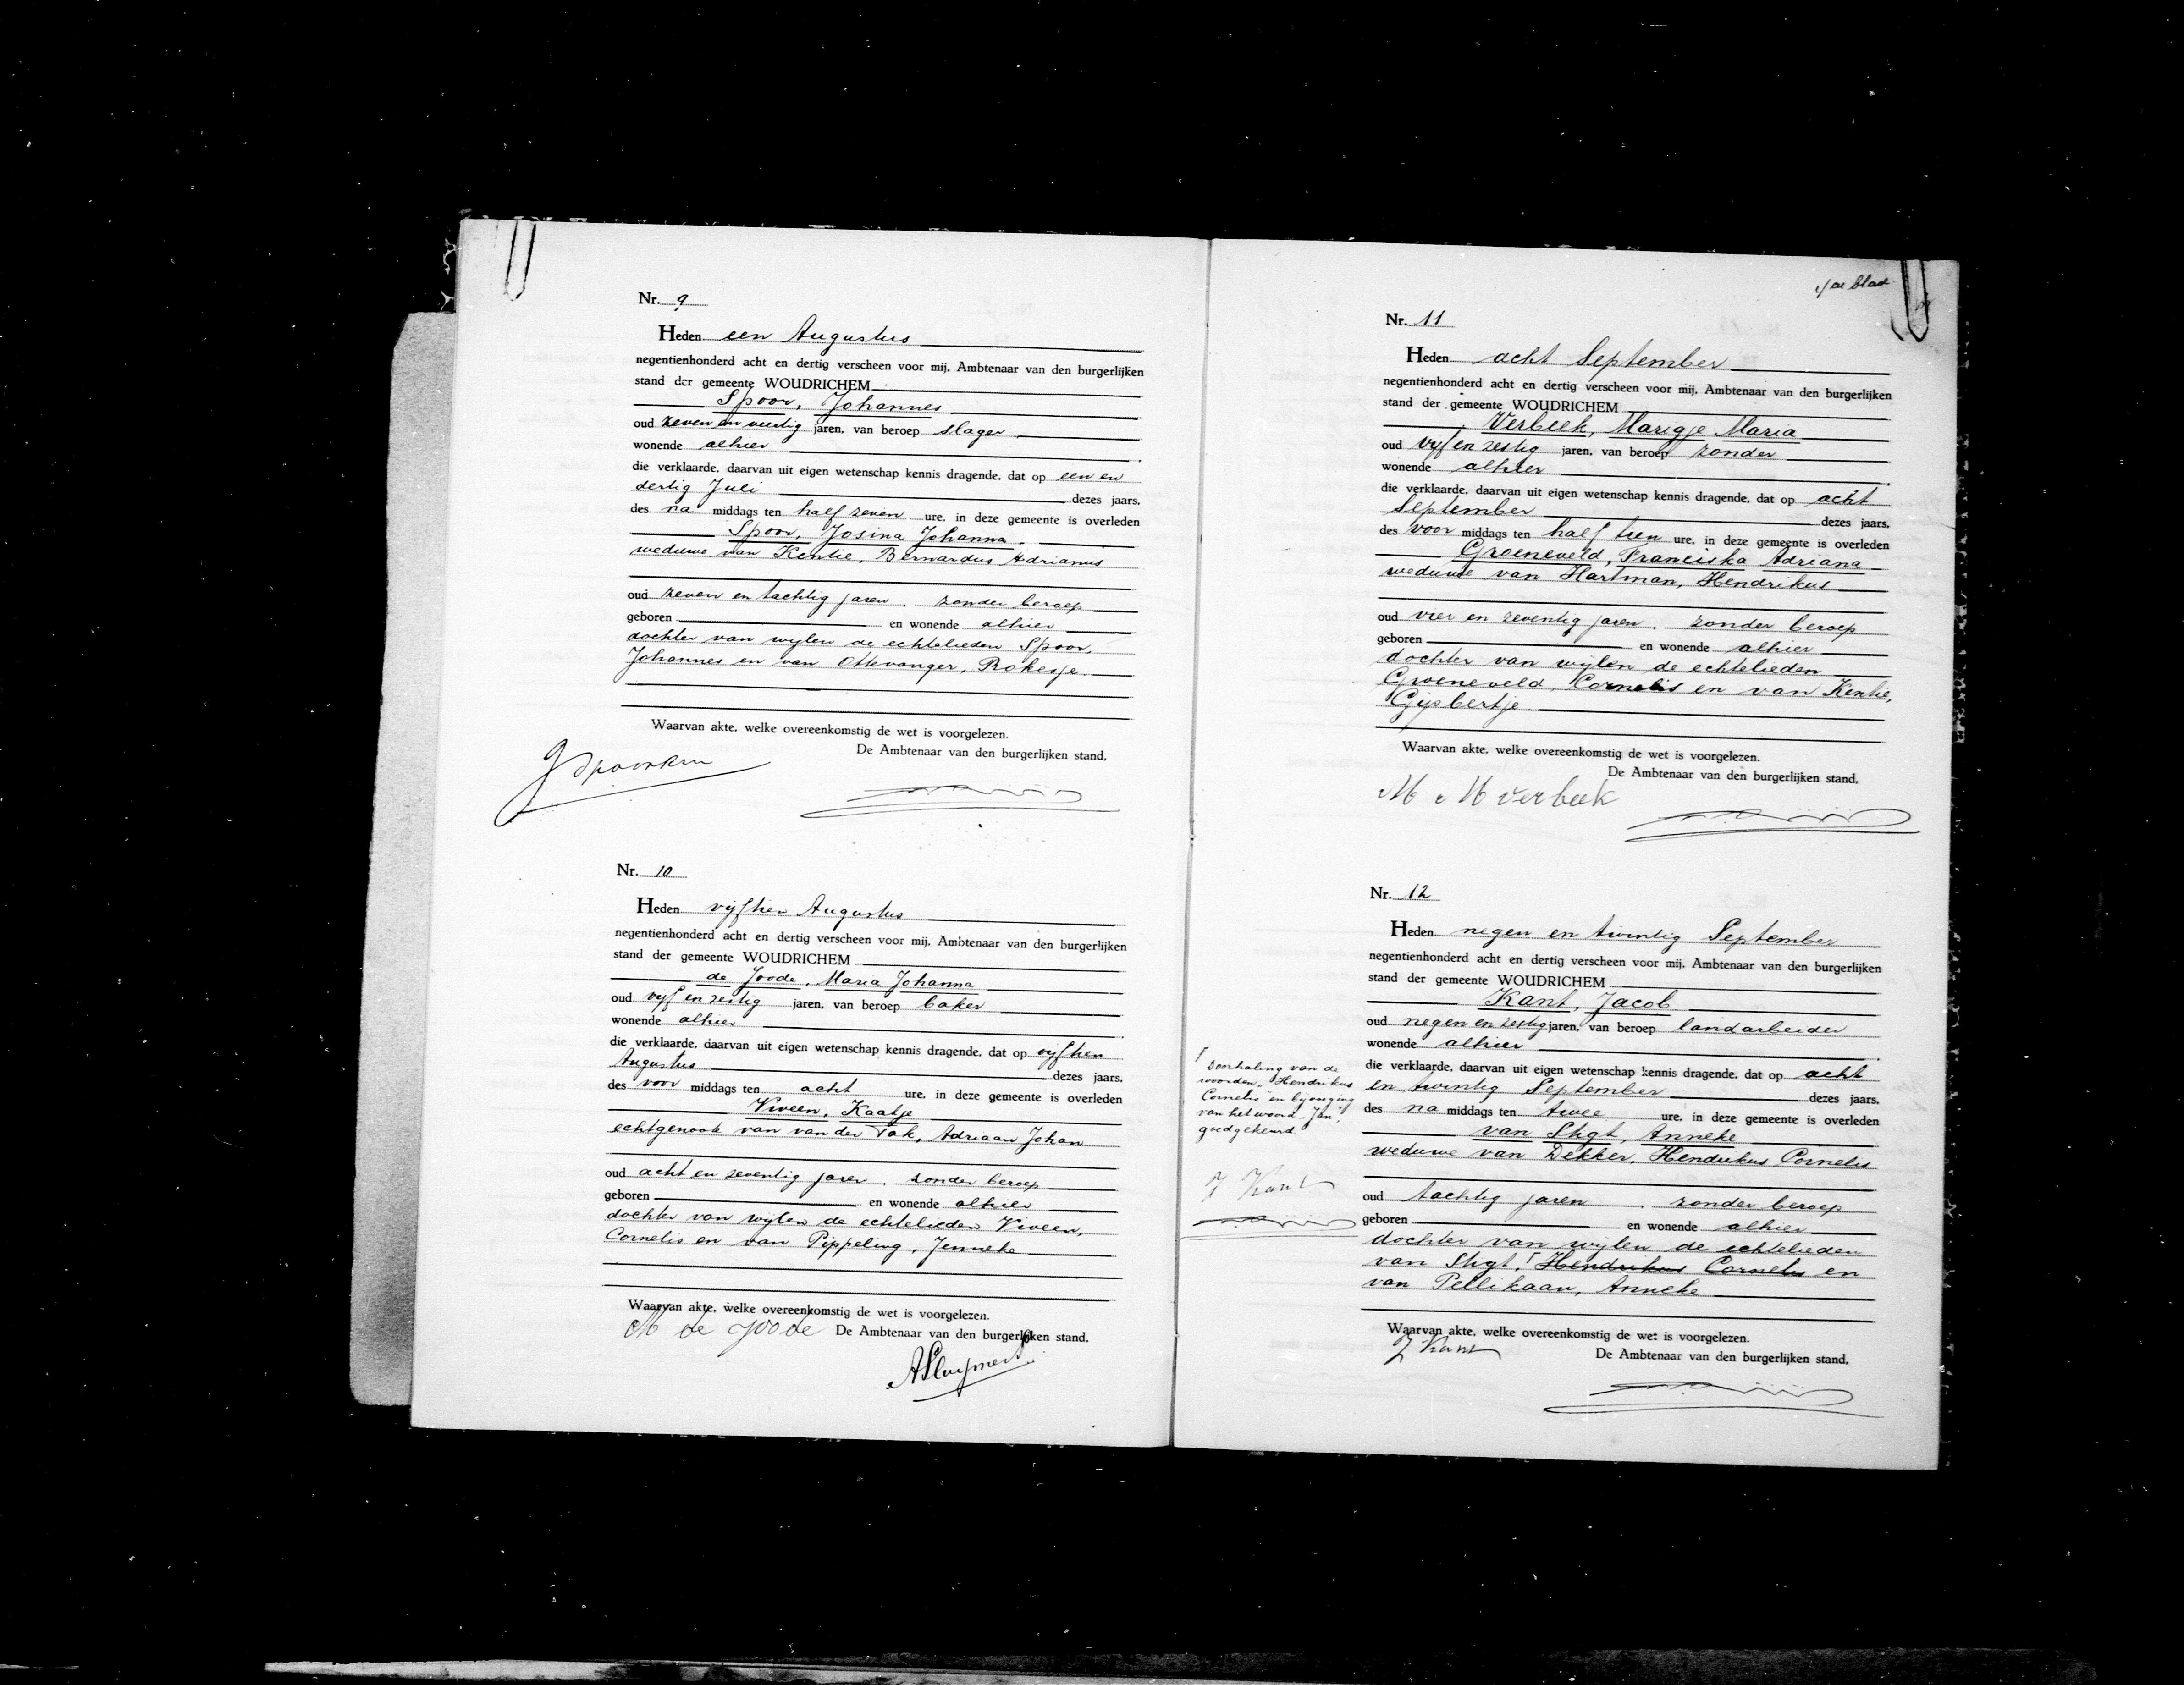 Nr. 9
Heden een Augustus
negentienhonderd acht en dertig verscheen voor mij, Ambtenaar van den burgerlijken
stand der gemeente WOUDRICHEM
Spoor, Johannes
oud zeven en veertig jaren, van beroep slager
wonende alhier
die verklaarde, daarvan uit eigen wetenschap kennis dragende, dat op een en
dertig Juli dezes jaars,
des na middags ten half zeven ure, in deze gemeente is overleden
Spoor, Josina Johanna,
weduwe van Kentie, Bernardus Adrianus
oud zeven en tachtig jaren, zonder beroep
geboren en wonende alhier
dochter van wijlen de echtelieden Spoor,
Johannes en van Ottevanger, Rokesje.
Waarvan akte, welke overeenkomstig de wet is voorgelezen.
De Ambtenaar van den burgerlijken stand,
Nr. 10
Heden vijftien Augustus
negentienhonderd acht en dertig verscheen voor mij, Ambtenaar van den burgerlijken
stand der gemeente WOUDRICHEM
de Joode, Maria Johanna
oud vijf en zestig jaren, van beroep baker
wonende alhier
die verklaarde, daarvan uit eigen wetenschap kennis dragende, dat op vijftien
Augustus dezes jaars,
des voor middags ten acht ure, in deze gemeente is overleden
Viveen, Kaatje
echtgenoote van van der Tak, Adriaan Johan
oud acht en zeventig jaren, zonder beroep
geboren en wonende alhier
dochter van wijlen de echtelieden Viveen,
Cornelis en van Pippeling, Jenneke
Waarvan akte, welke overeenkomstig de wet is voorgelezen.
M de Joode De Ambtenaar van den burgerlijken stand,
4de blad
Nr. 11
Heden acht September
negentienhonderd acht en dertig verscheen voor mij, Ambtenaar van den burgerlijken
stand der gemeente WOUDRICHEM
Verbeek, Marigje Maria
oud vijf en zestig jaren, van beroep zonder
wonende alhier
die verklaarde, daarvan uit eigen wetenschap kennis dragende, dat op acht
September dezes jaars,
des voor middags ten half tien ure, in deze gemeente is overleden
Groeneveld, Franciska Adriana
weduwe van Hartman, Hendrikus
oud vier en zeventig jaren, zonder beroep
geboren en wonende alhier
dochter van wijlen de echtelieden
Groeneveld, Cornelis en van Kentie,
Gijsbertje.
Waarvan akte, welke overeenkomstig de wet is voorgelezen.
De Ambtenaar van den burgerlijken stand,
M M Verbeek
Nr. 12
Heden negen en twintig September
negentienhonderd acht en dertig verscheen voor mij, Ambtenaar van den burgerlijken
stand der gemeente WOUDRICHEM
Kant, Jacob
oud negen en zestig jaren, van beroep landarbeider
wonende alhier
die verklaarde, daarvan uit eigen wetenschap kennis dragende, dat op acht
en twintig September dezes jaars,
des na middags ten twee ure, in deze gemeente is overleden
van Stigt, Anneke
weduwe van Dekker, Hendrikus Cornelis
oud tachtig jaren, zonder beroep
geboren en wonende alhier
dochter van wijlen de echtelieden
van Stigt, Hendrikus Cornelis en
van Pellikaan, Anneke
Waarvan akte, welke overeenkomstig de wet is voorgelezen.
J Kant
De Ambtenaar van den burgerlijken stand,
Doorhaling van de
woorden "Hendrikus
Cornelis en bijvoeging
van het woord "Jan"
goedgekeurd.
J Kant